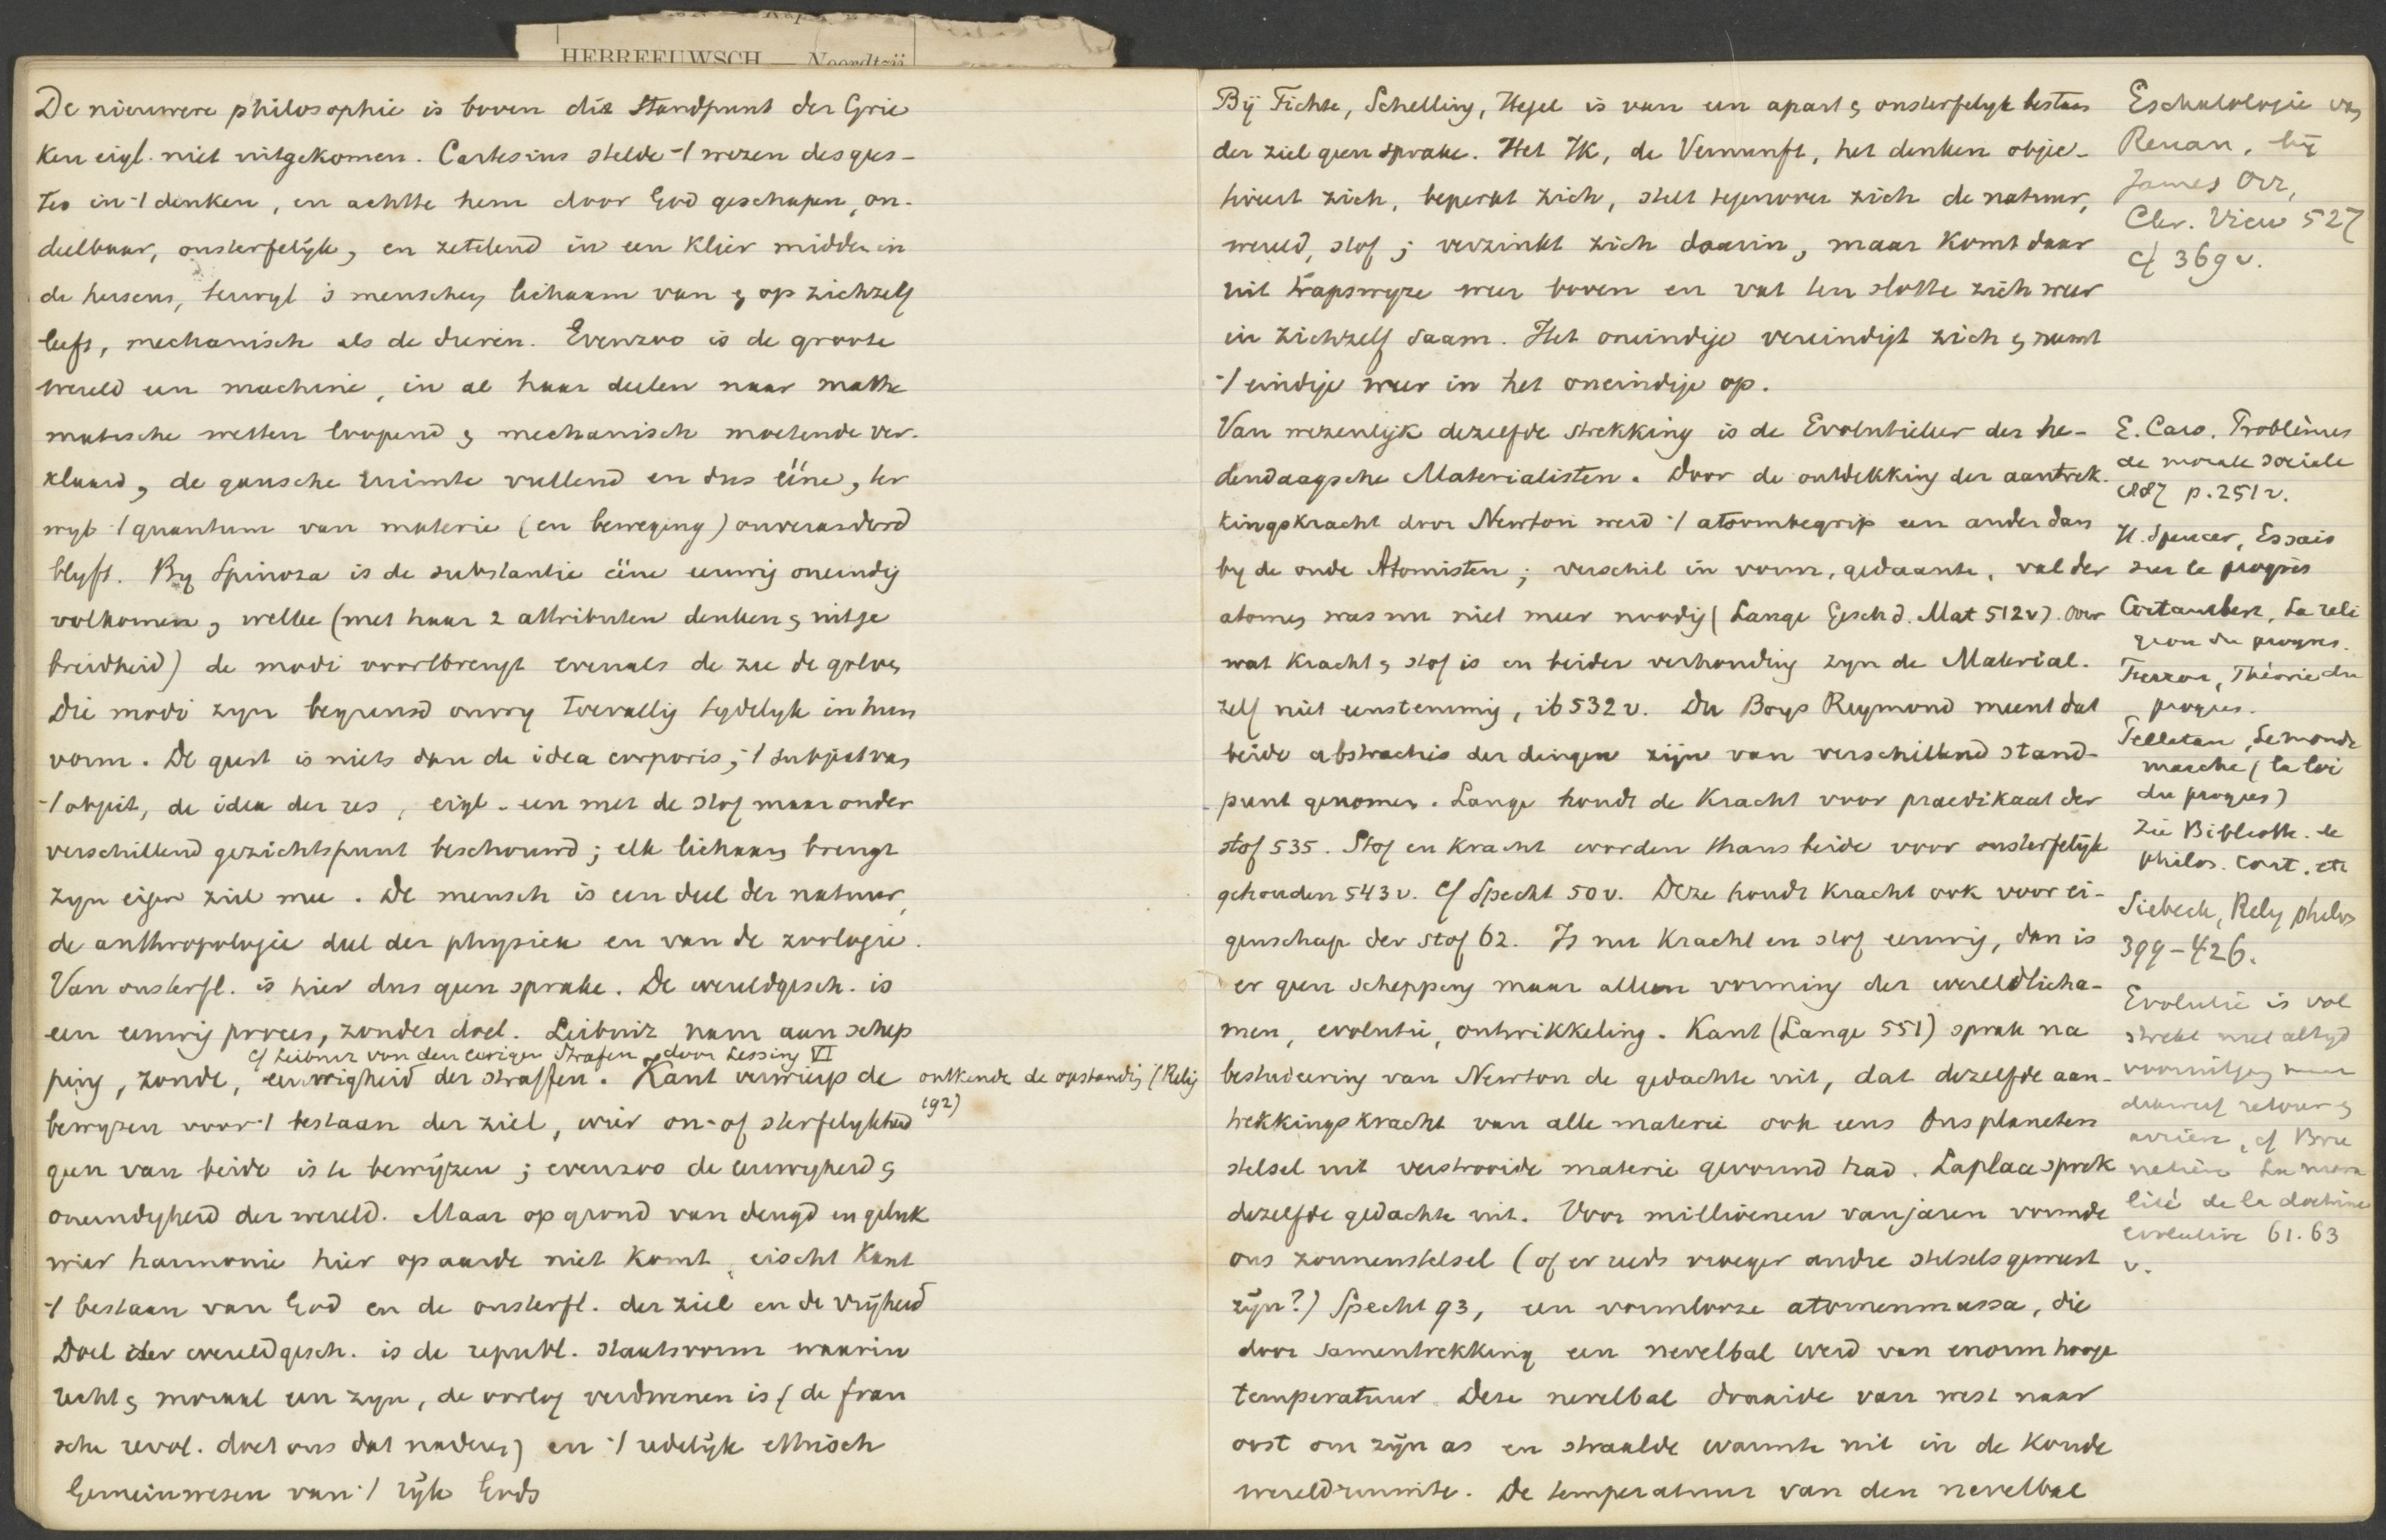 HEBREEUWSCH — Noordtzij
De nieuwere philosophie is boven dit standpunt der Grie
ken eigl. niet uitgekomen. Cartesius stelde -/ wezen des gees-
tes in -/ denken, en achtte hem door God geschapen, on-
deelbaar, onsterfelijk, en zetelend in een klier midden in
de hersens, terwyl 's menschen lichaam van & op zichzelf
leeft, mechanisch als de dieren. Evenzoo is de groote
wereld een machine, in al haar deelen naar mathe
matische wetten loopend & mechanisch moetende ver-
klaard, de gansche ruimte vullend en dus ééne, ter
wyl -/ quantum van materie (en beweging) onveranderd
blyft. By Spinoza is de substantie ééne eeuwig oneindig
volkomen, welke (met haar 2 attributen denken & uitge
breidheid) de modi voortbrengt evenals de zee de golven
Die modi zyn begrensd onvry toevallig tydelyk in hun
vorm. De geest is niets dan de idea corporis, -/ subject van
-/ object, de idea der res, eigl. een met de stof maar onder
verschillend gezichtspunt beschouwd; elk lichaam brengt
zyn eigen ziel mee. De mensch is een deel der natuur,
de anthropologie deel der physica en van de zoologie.
Van onsterfl. is hier dus geen sprake. De wereldgesch. is
een eeuwig proces, zonder doel. Leibniz nam aan schep
cf Leibniz von den ewigen Strafen door Lessing VI
ping, zonde, eeuwigheid der straffen. Kant verwierp de
ontkende de opstandig (Relig
192)
bewyzen voor -/ bestaan der ziel, wier on- of sterfelykheid
geen van beide is te bewijzen; evenzoo de eeuwigheid &
oneindigheid der wereld. Maar op grond van deugd en geluk
wier harmonie hier op aarde niet komt, eischt Kant
-/ bestaan van God en de onsterfl. der ziel en de vrijheid
Doel der wereldgesch. is de republ. staatsvorm waarin
recht & moraal een zyn, de oorlog verdwenen is (de fran
sche revol. doet ons dat naderen) en -/ redelijk ethisch
Gemeinwesen van -/ rijk Gods
Bij Fichte, Schelling, Hegel is van een apart & onsterfelyk bestaan
der ziel geen sprake. Het Ik, de Vernunft, het denken objec-
tiveert zich, beperkt zich, stelt tegenover zich de natuur,
wereld, stof; verzinkt zich daarin, maar komt daar
uit trapswyze weer boven en vat ten slotte zich weer
in zichzelf saam. Het oneindige vereindigt zich & neemt
-/ eindige weer in het oneindige op.
Van wezenlijk dezelfde strekking is de Evolutieleer der he-
dendaagsche Materialisten. Door de ontdekking der aantrek-
kingskracht door Newton werd -/ atoombegrip een ander dan
by de oude Atomisten; verschil in vorm, gedaante, val der
atomen was nu niet meer noodig (Lange Gesch d. Mat 512v). Over
wat kracht & stof is en beider verhouding zyn de Material.
zelf niet eenstemmig, ib 532 v. Du Boys Reymond meent dat
beide abstracties der dingen zijn van verschillend stand-
punt genomen. Lange houdt de kracht voor praedikaat der
stof 535. Stof en kracht worden thans beide voor onsterfelijk
gehouden 543 v. Cf Specht 50 v. Deze houdt kracht ook voor ei-
genschap der stof 62. Is nu kracht en stof eeuwig, dan is
er geen schepping maar alleen vorming der wereldlicha-
men, evolutie, ontwikkeling. Kant (Lange 551) sprak na
bestudeering van Newton de gedachte uit, dat dezelfde aan-
trekkingskracht van alle materie ook eens ons planeten
stelsel uit verstrooide materie gevormd had. Laplace sprak
dezelfde gedachte uit. Voor millioenen van jaren vormde
ons zonnenstelsel (of er reeds vroeger andre stelsels geweest
zijn?) Specht 93, een vormlooze atomenmassa, die
door samentrekking een nevelbal werd van enorm hooge
temperatuur. Deze nevelbal draaide van west naar
oost om zijn as en straalde warmte uit in de koude
wereldruimte. De temperatuur van den nevelbal
Eschatologie van
Renan, bij
James Orr,
Chr. View 527
cf 369 v.
E. Caro. Problèmes
de morale sociale
1887 p. 251 v.
H. Spencer, Essais
sur le progrès
La reli
gion du progres.
Théorie du
progres.
Pelletan, Le monde
marche (la loi
du progres)
Zie Biblioth. de
philos. cont. etc
Siebeck, Relig philos
399-426.
Evolutie is vol
strekt niet altyd
vooruitgang maar
retour &
cf Bru
netière La mora
lité de la doctrine
evolutive 61. 63
v.